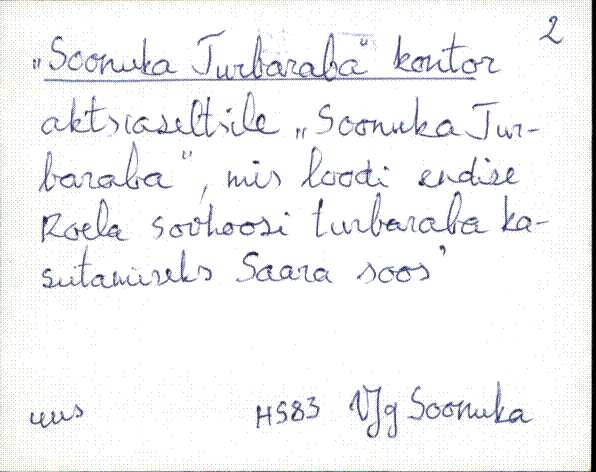 2
„Soonuka Turbaraba" kontor
aktsiaseltsile „Soonuka Tur-
baraba", mis loodi endise
Roela sovhoosi turbaraba ka-
sutamiseks Saara soos'
uus HS83 VJg Soonuka